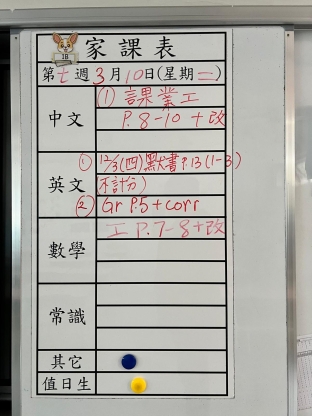 1B
家課表
第七週3月10日(星期二)
中文
(1) 課業工
P.8-10 +改
英文
① 12/3(四)默書P.13(1-3)
(不計分)
② Gr P.5+corr
數學
工 P.7-8+改
常識
其它
值日生